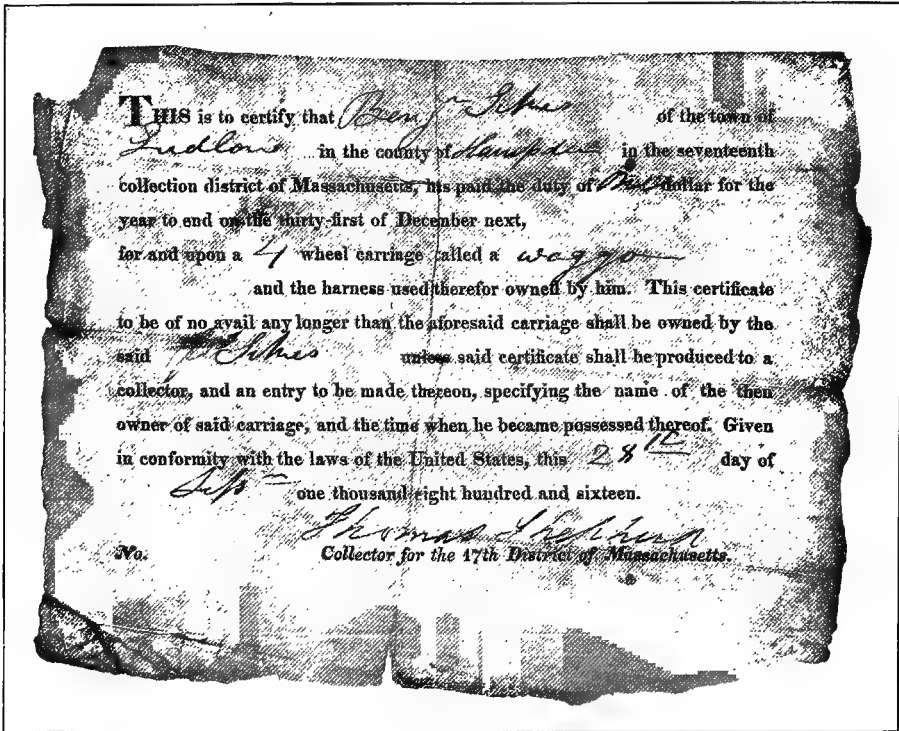 THIS is to certify that Benj Sikes of the town of
Ludlow in the county of Hampden in the seventeenth
collection district of Massachusetts, has paid the duty of one dollar for the
year to end on the thirty-first of December next,
for and upon a 4 wheel carriage called a waggon
and the harness used therefor owned by him. This certificate
to be of no avail any longer than the aforesaid carriage shall be owned by the
said Sikes unless said certificate shall be produced to a
collector, and an entry to be made thereon, specifying the name of the then
owner of said carriage, and the time when he became possessed thereof. Given
in conformity with the laws of the United States, this 28th day of
Sept one thousand eight hundred and sixteen.
Thomas Shepherd
No. Collector for the 17th District of Massachusetts.